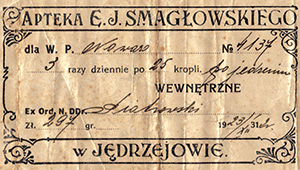 APTEKA E. J. SMAGŁOWSKIEGO
dla W. P. Nowars № 4137
3 razy dziennie po 25 kropli. po jedzeniu
WEWNĘTRZNE
Ex Ord. N. DDr.
zł. 297 gr. 19 29 31
w JĘDRZEJOWIE.